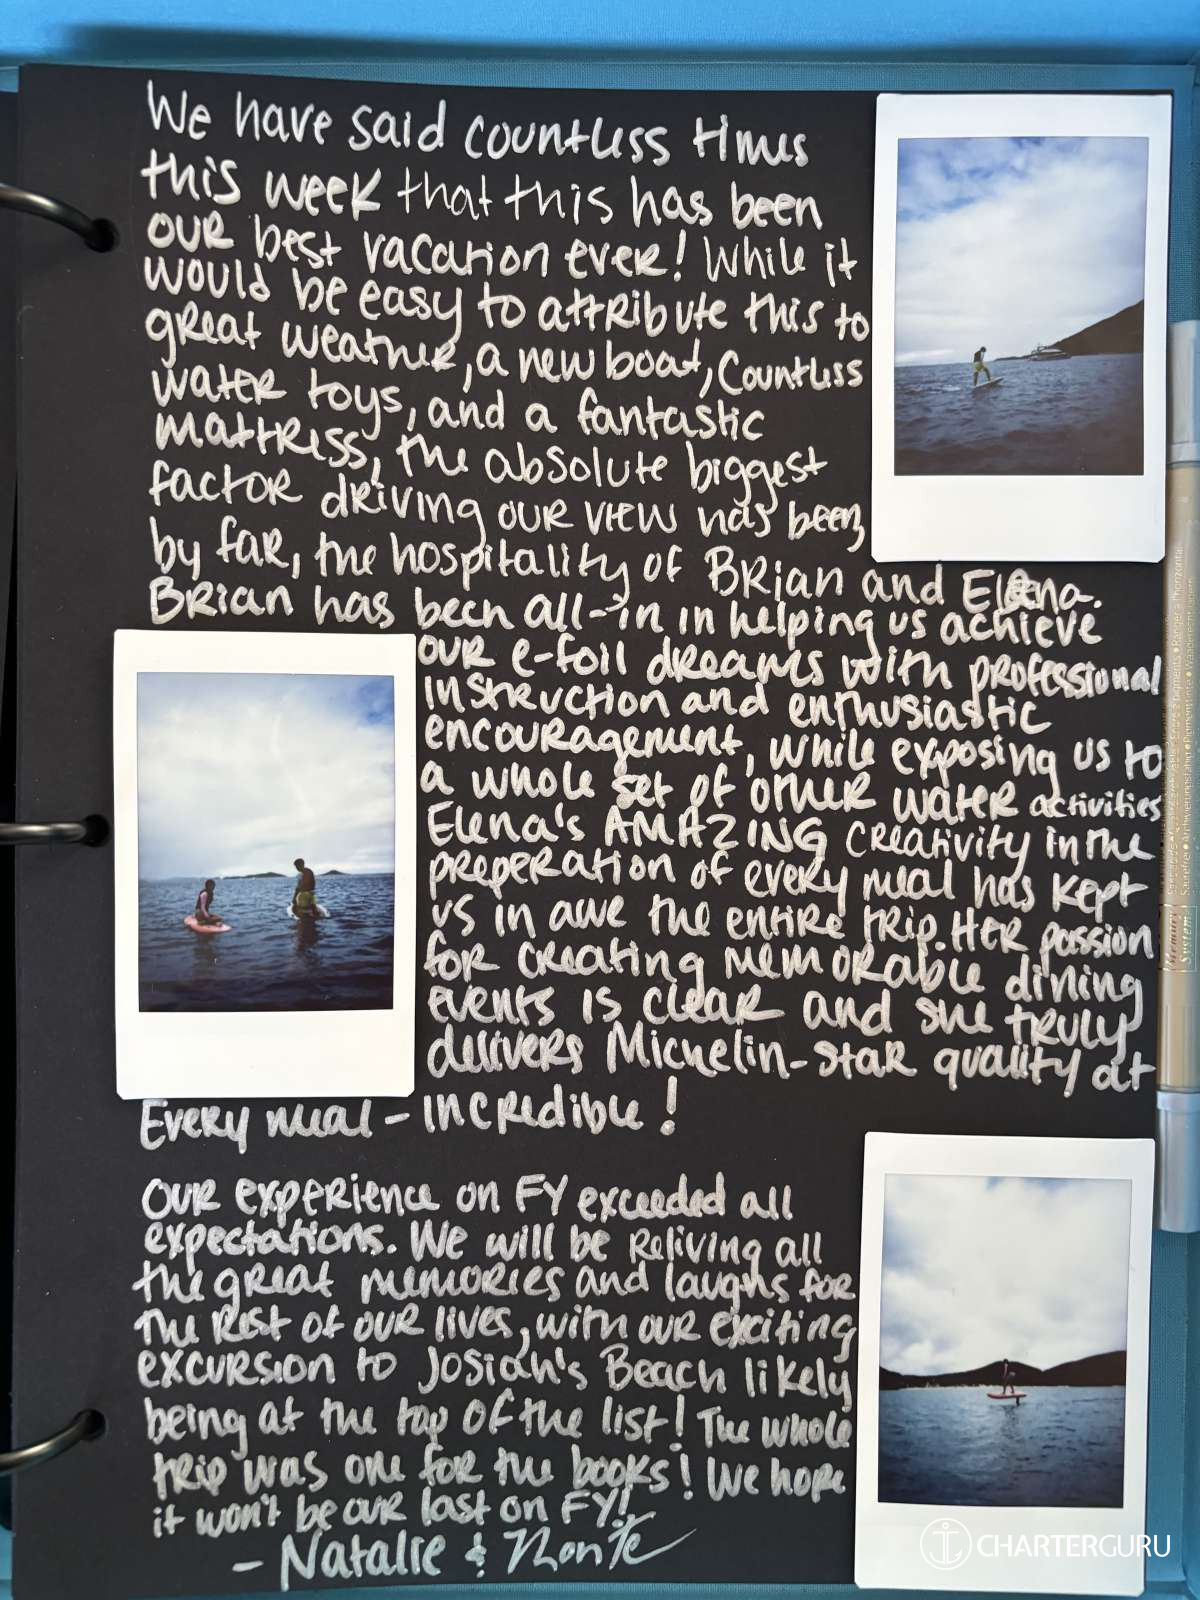 We have said countless times
this week that this has been
our best vacation ever! While it
would be easy to attribute this to
great weather, a new boat, countless
water toys, and a fantastic
mattress, the absolute biggest
factor driving our view has been,
by far, the hospitality of Brian and Elena.
Brian has been all-in in helping us achieve
our e-foil dreams with professional
instruction and enthusiastic
encouragement, while exposing us to
a whole set of other water activities
Elena's AMAZING creativity in the
preperation of every meal has kept
us in awe the entire trip. Her passion
for creating memorable dining
events is clear and she truly
delivers Michelin-star quality at
Every meal - incredible!
Our experience on FY exceeded all
expectations. We will be reliving all
the great memories and laughs for
the rest of our lives, with our exciting
excursion to Josiah's Beach likely
being at the top of the list! The whole
trip was one for the books! We hope
it won't be our last on FY!
- Natalie & Monte
CHARTERGURU